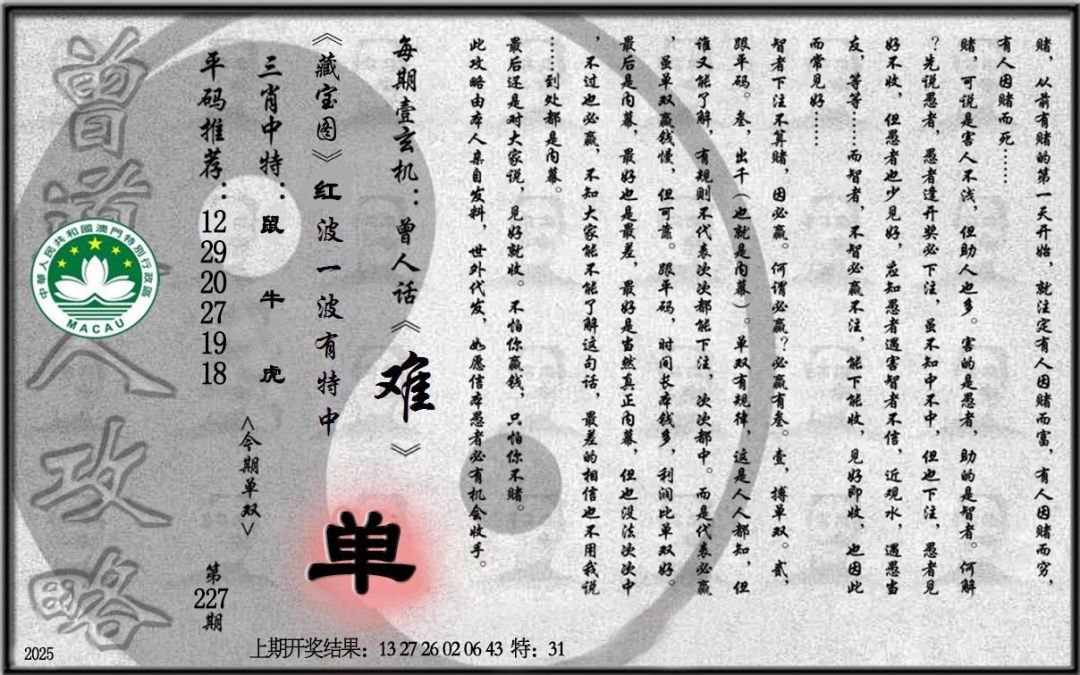 赌，从前有赌的第一天开始，就注定有人因赌而富，有人因赌而穷，
有人因赌而死……
赌，可说是害人不浅，但助人也多。害的是愚者，助的是智者。何解
？先说愚者，愚者逢开奖必下注，虽不知中不中，但也下注，愚者见
好不收，但愚者也少见好，应知愚者遇害智者不信，近观水，遇愚当
友，等等……而智者，不智必赢不注，能下能收，见好即收，也因此
而常见好……
智者下注不算赌，因必赢。何谓必赢？必赢有叁。壹，搏单双。贰，
跟单码。叁，出千（也就是内幕）。单双有规律，这是人人都知，但
谁又能了解，有规则不代表次次都能下注，次次都中。而是代表必赢
，虽单双赢钱慢，但可靠。跟单码，时间长本钱多，利润比单双好。
最后是内幕，最好也是最差，最好是当然真正内幕，但也没法次次中
，不过也必赢，不知大家能不能了解这句话，最差的相信也不用我说
……到处都是内幕。
最后还是对大家说，见好就收。不怕你赢钱，只怕你不赌。
此攻略由本人亲自发料，世外代发，如愿信本愚者必有机会收手。
每期壹玄机：曾人话《难》
《藏宝图》红波一波有特中
单
三肖中特：鼠 牛 虎
<今期单双>
平码推荐：12 29 20 27 19 18
第227期
曾道人攻略
中華人民共和國澳門特別行政區
MACAU
2025
上期开奖结果：13 27 26 02 06 43 特：31